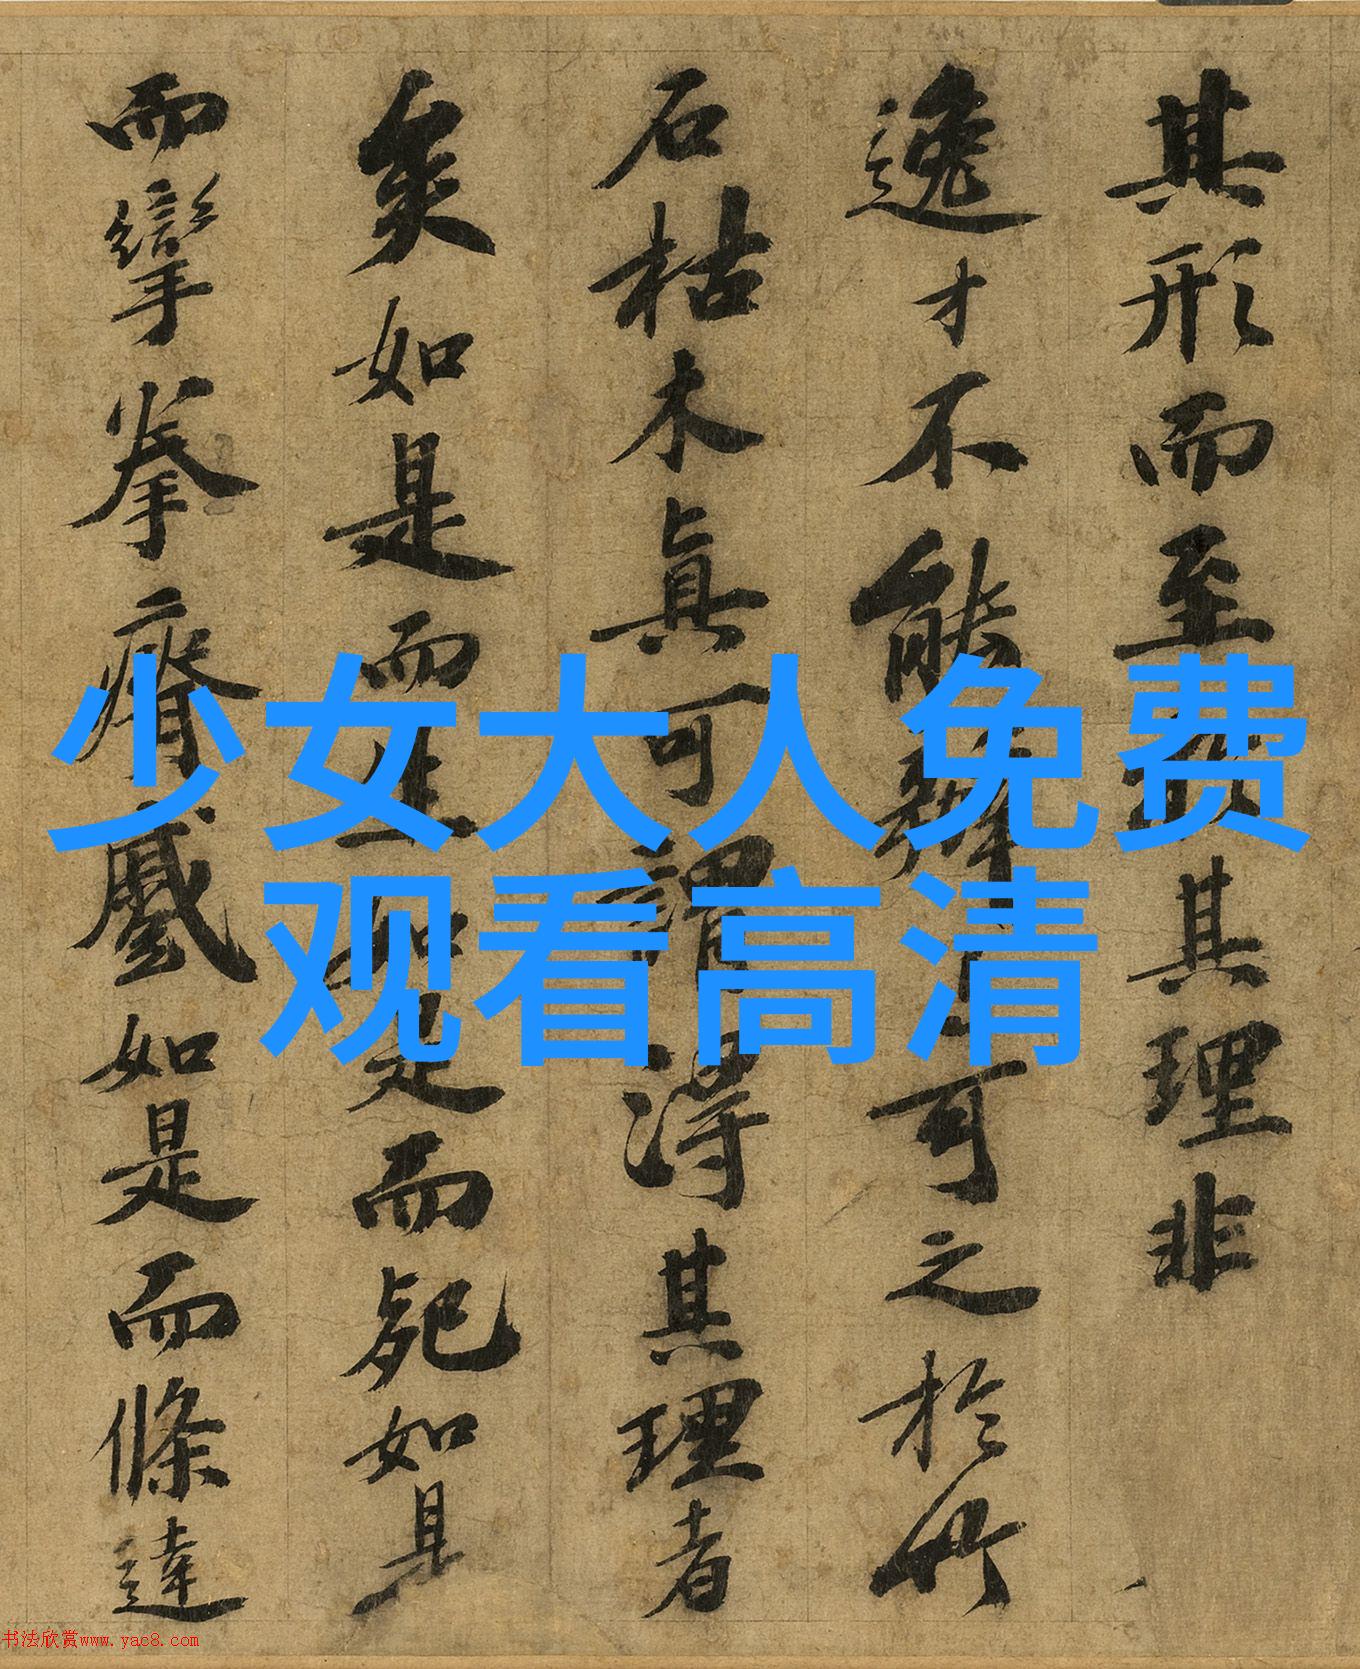 其形而至其理非
逸才不能可之於竹
石枯木眞可謂得其理者
矣如是而生如是而死如是
而攣拳瘠蹙如是而條達
少女大人免费
观看高清
书法欣赏www.yac8.com